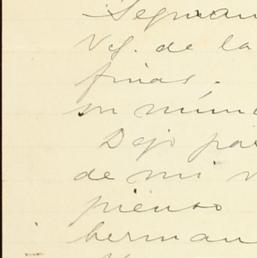 Seguram
Vd. de la
finas.
un núm
Dejo par
de mi v
pienso
herman